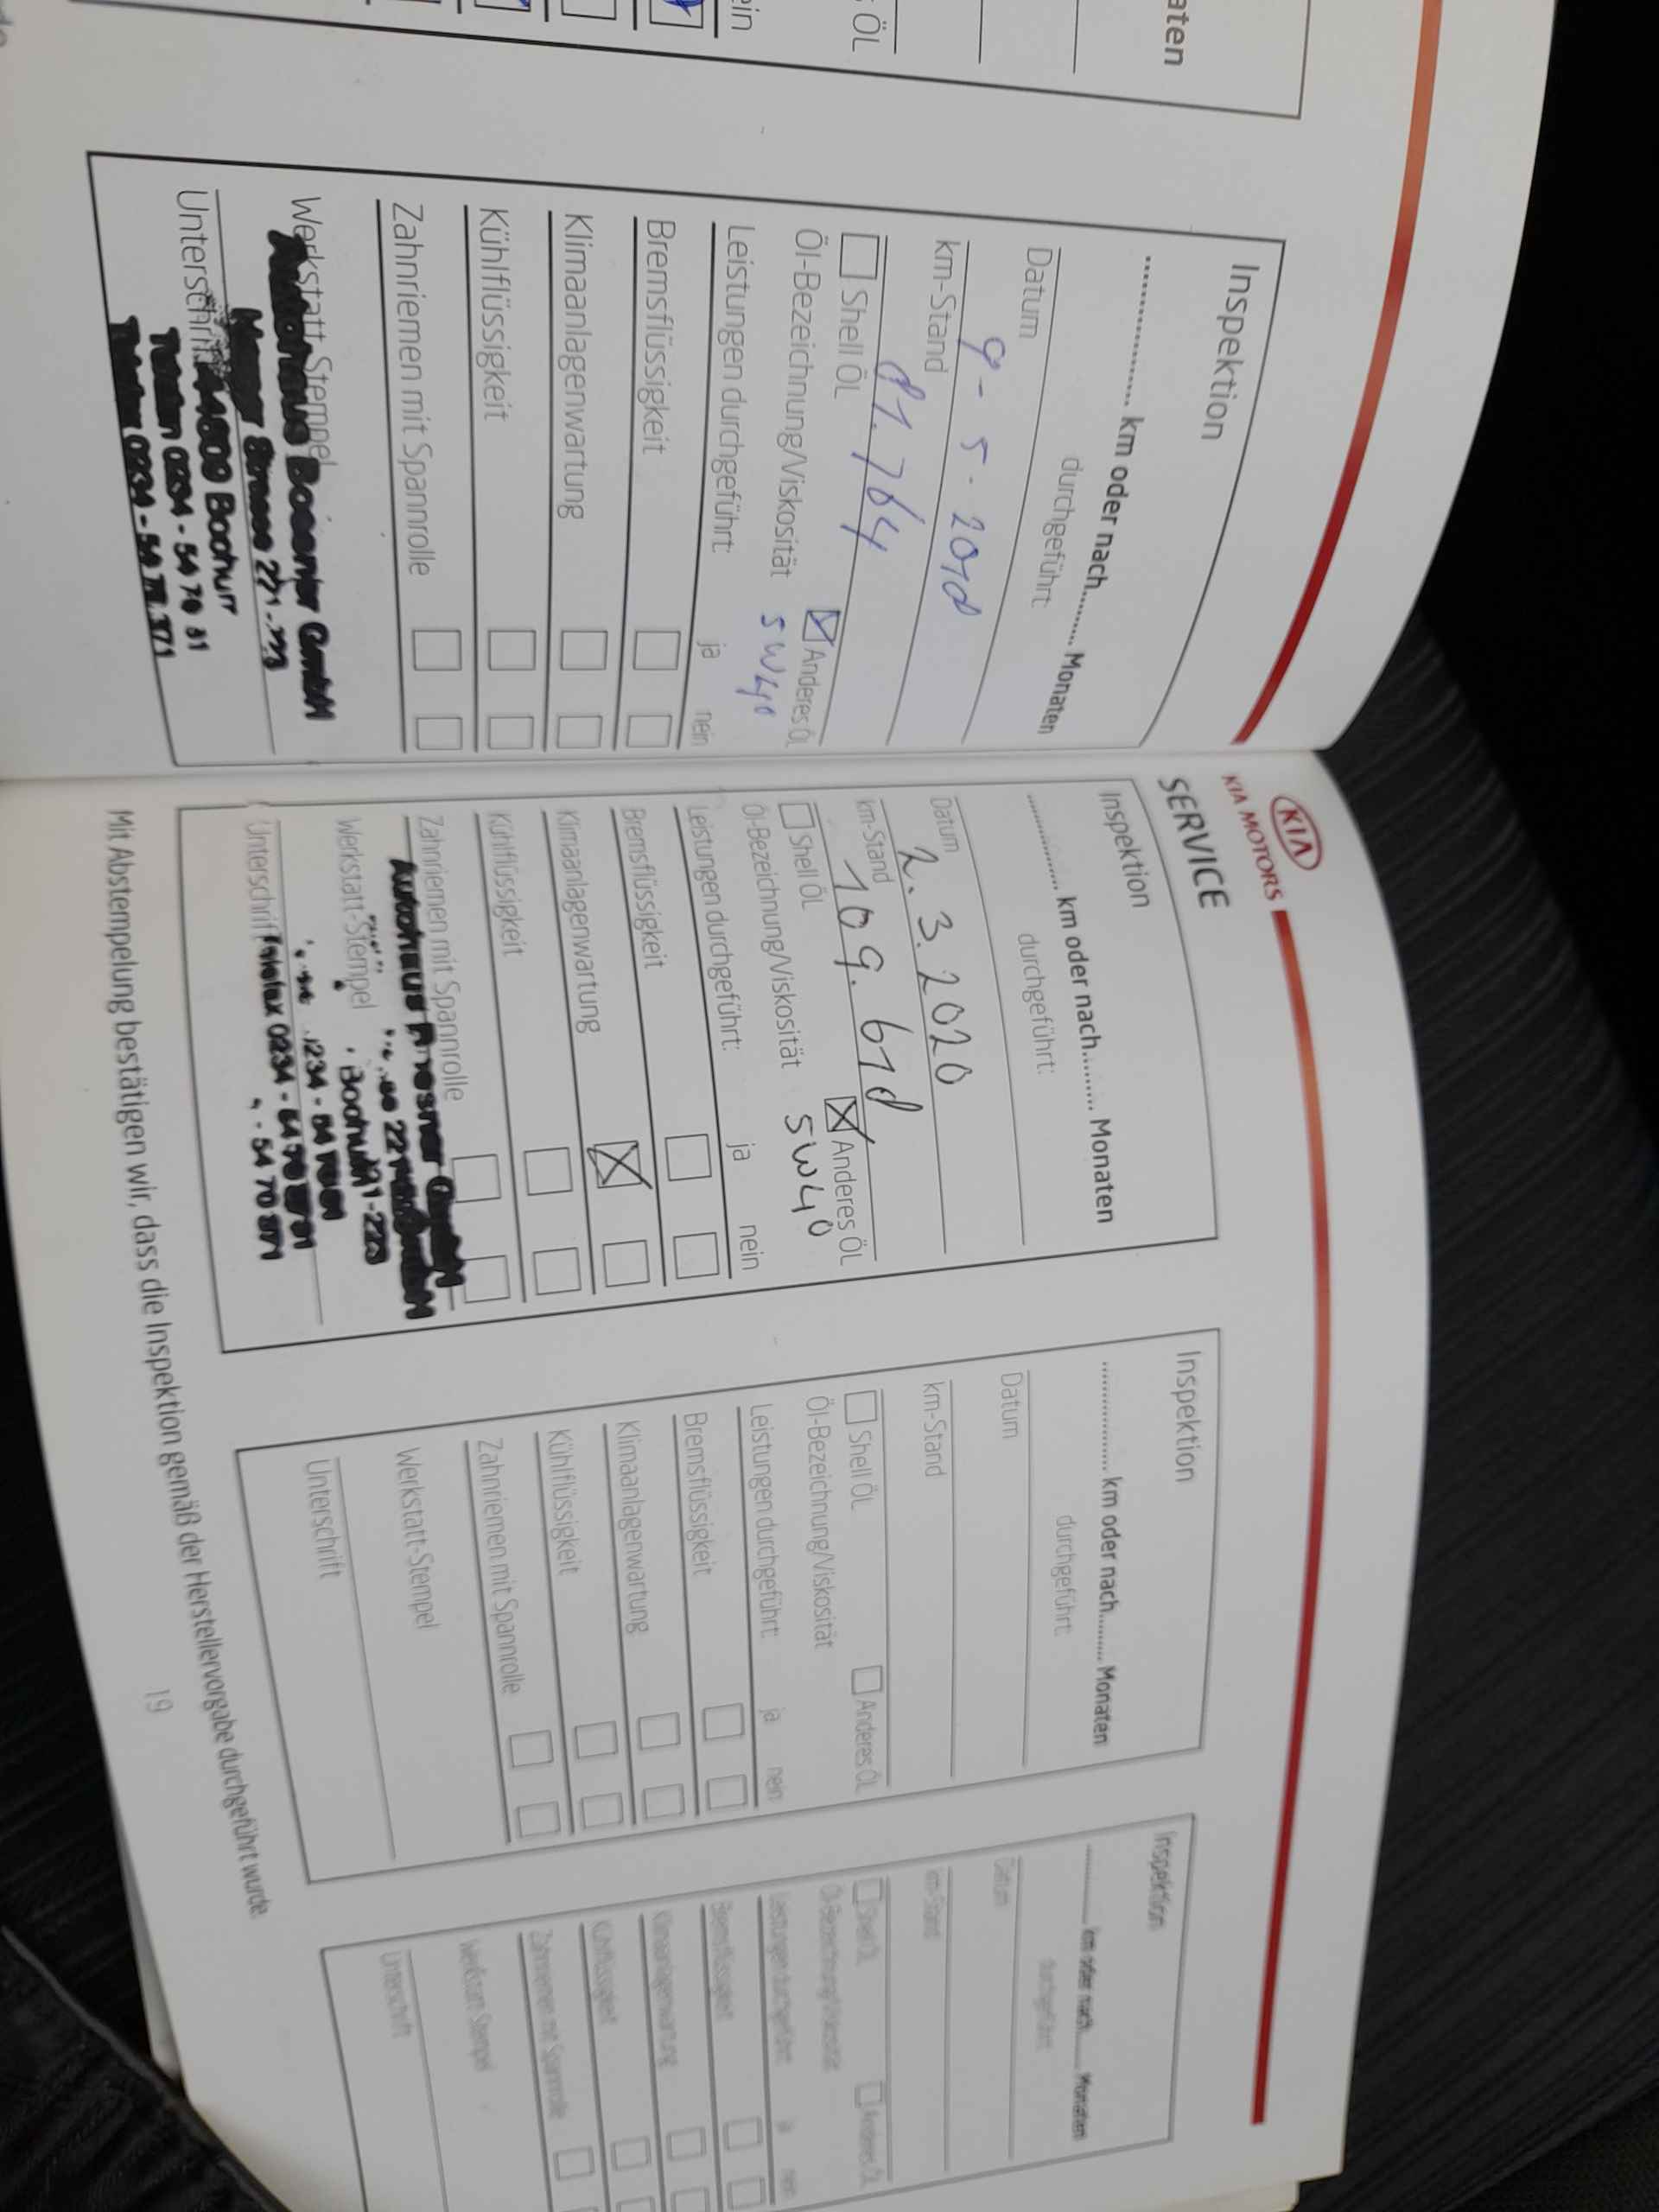 aten
ÖL
ein
Inspektion
............... km oder nach......... Monaten
durchgeführt:
Datum
9-5-2018
km-Stand
81.764
Shell ÖL
Anderes ÖL
Öl-Bezeichnung/Viskosität 5W40
Leistungen durchgeführt: ja nein
Bremsflüssigkeit
Klimaanlagenwartung
Kühlflüssigkeit
Zahnriemen mit Spannrolle
Werkstatt-Stempel
GmbH
Unterschrift
44809 Bochum
0234 - 54 70 81
KIA
KIA MOTORS
SERVICE
Inspektion
............... km oder nach......... Monaten
durchgeführt:
Datum
2.3.2020
km-Stand
109.618
Shell ÖL
Anderes ÖL
Öl-Bezeichnung/Viskosität 5W40
Leistungen durchgeführt: ja nein
Bremsflüssigkeit
Klimaanlagenwartung
Kühlflüssigkeit
Zahnriemen mit Spannrolle
Autohaus
Werkstatt-Stempel
Bochum
Unterschrift
Telefax 0234
Inspektion
............... km oder nach......... Monaten
durchgeführt:
Datum
km-Stand
Shell ÖL
Anderes ÖL
Öl-Bezeichnung/Viskosität
Leistungen durchgeführt: ja nein
Bremsflüssigkeit
Klimaanlagenwartung
Kühlflüssigkeit
Zahnriemen mit Spannrolle
Werkstatt-Stempel
Unterschrift
Inspektion
............... km oder nach......... Monaten
durchgeführt:
Datum
km-Stand
Shell ÖL
Anderes ÖL
Öl-Bezeichnung/Viskosität
Leistungen durchgeführt: ja nein
Bremsflüssigkeit
Klimaanlagenwartung
Kühlflüssigkeit
Zahnriemen mit Spannrolle
Werkstatt-Stempel
Unterschrift
Mit Abstempelung bestätigen wir, dass die Inspektion gemäß der Herstellervorgabe durchgeführt wurde.
19